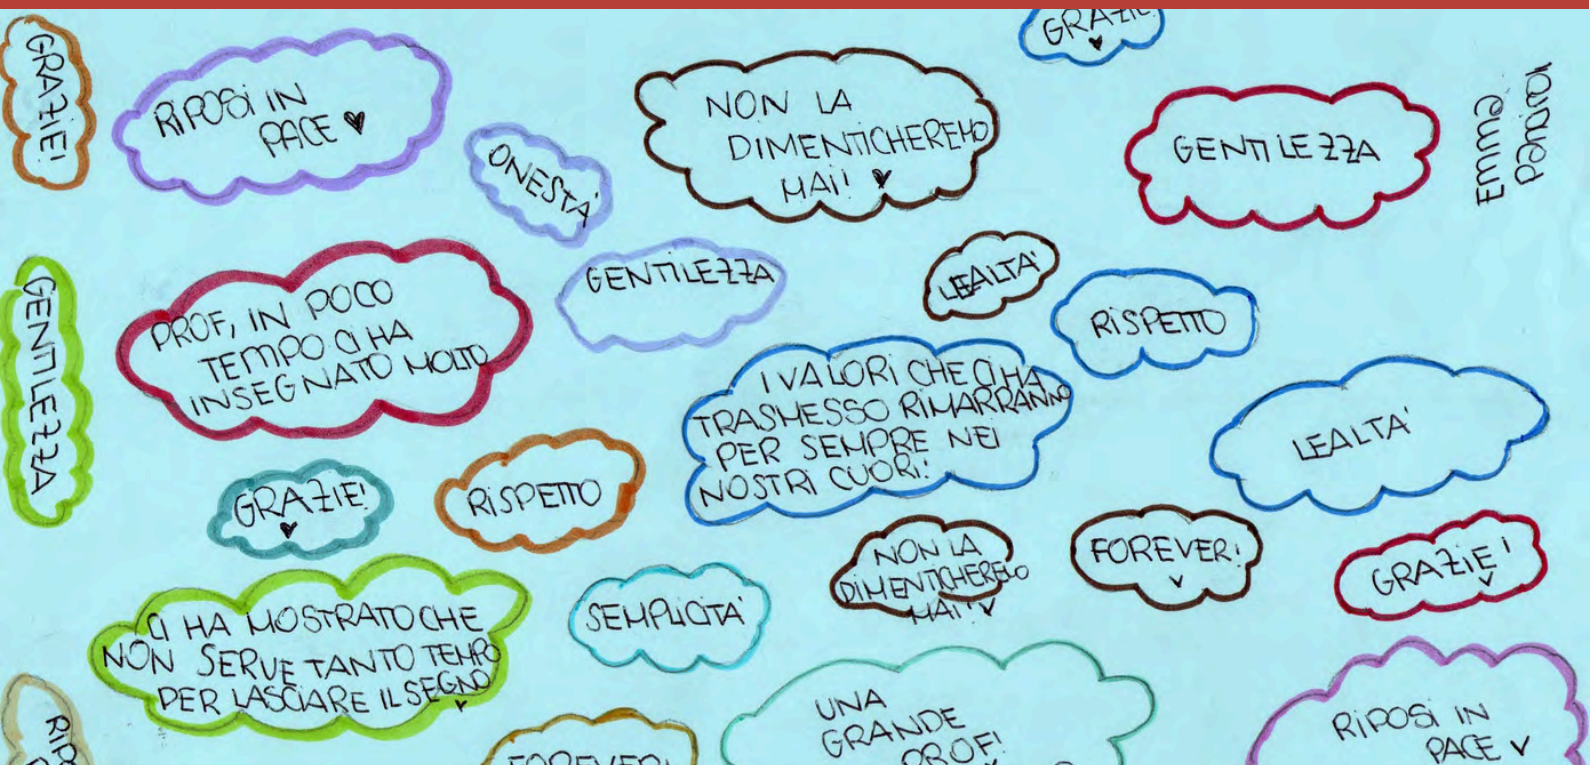 GRAZIE!
RIPOSI IN
PACE ♥
ONESTÀ
NON LA
DIMENTICHEREMO
MAI! ♥
GRAZIE!
♥
GENTILEZZA
Emma
GENTILEZZA
PROF, IN POCO
TEMPO CI HA
INSEGNATO MOLTO
GENTILEZZA
LEALTA'
RISPETTO
I VALORI CHE CI HA
TRASMESSO RIMARRANNO
PER SEMPRE NEI
NOSTRI CUORI!
LEALTA'
GRAZIE!
♥
RISPETTO
NON LA
DIMENTICHEREMO
MAI!
FOREVER!
GRAZIE!
CI HA MOSTRATO CHE
NON SERVE TANTO TEMPO
PER LASCIARE IL SEGNO
♥
SEMPLICITÀ
FOREVER!
UNA
GRANDE
PROF!
RIPOSI IN
PACE